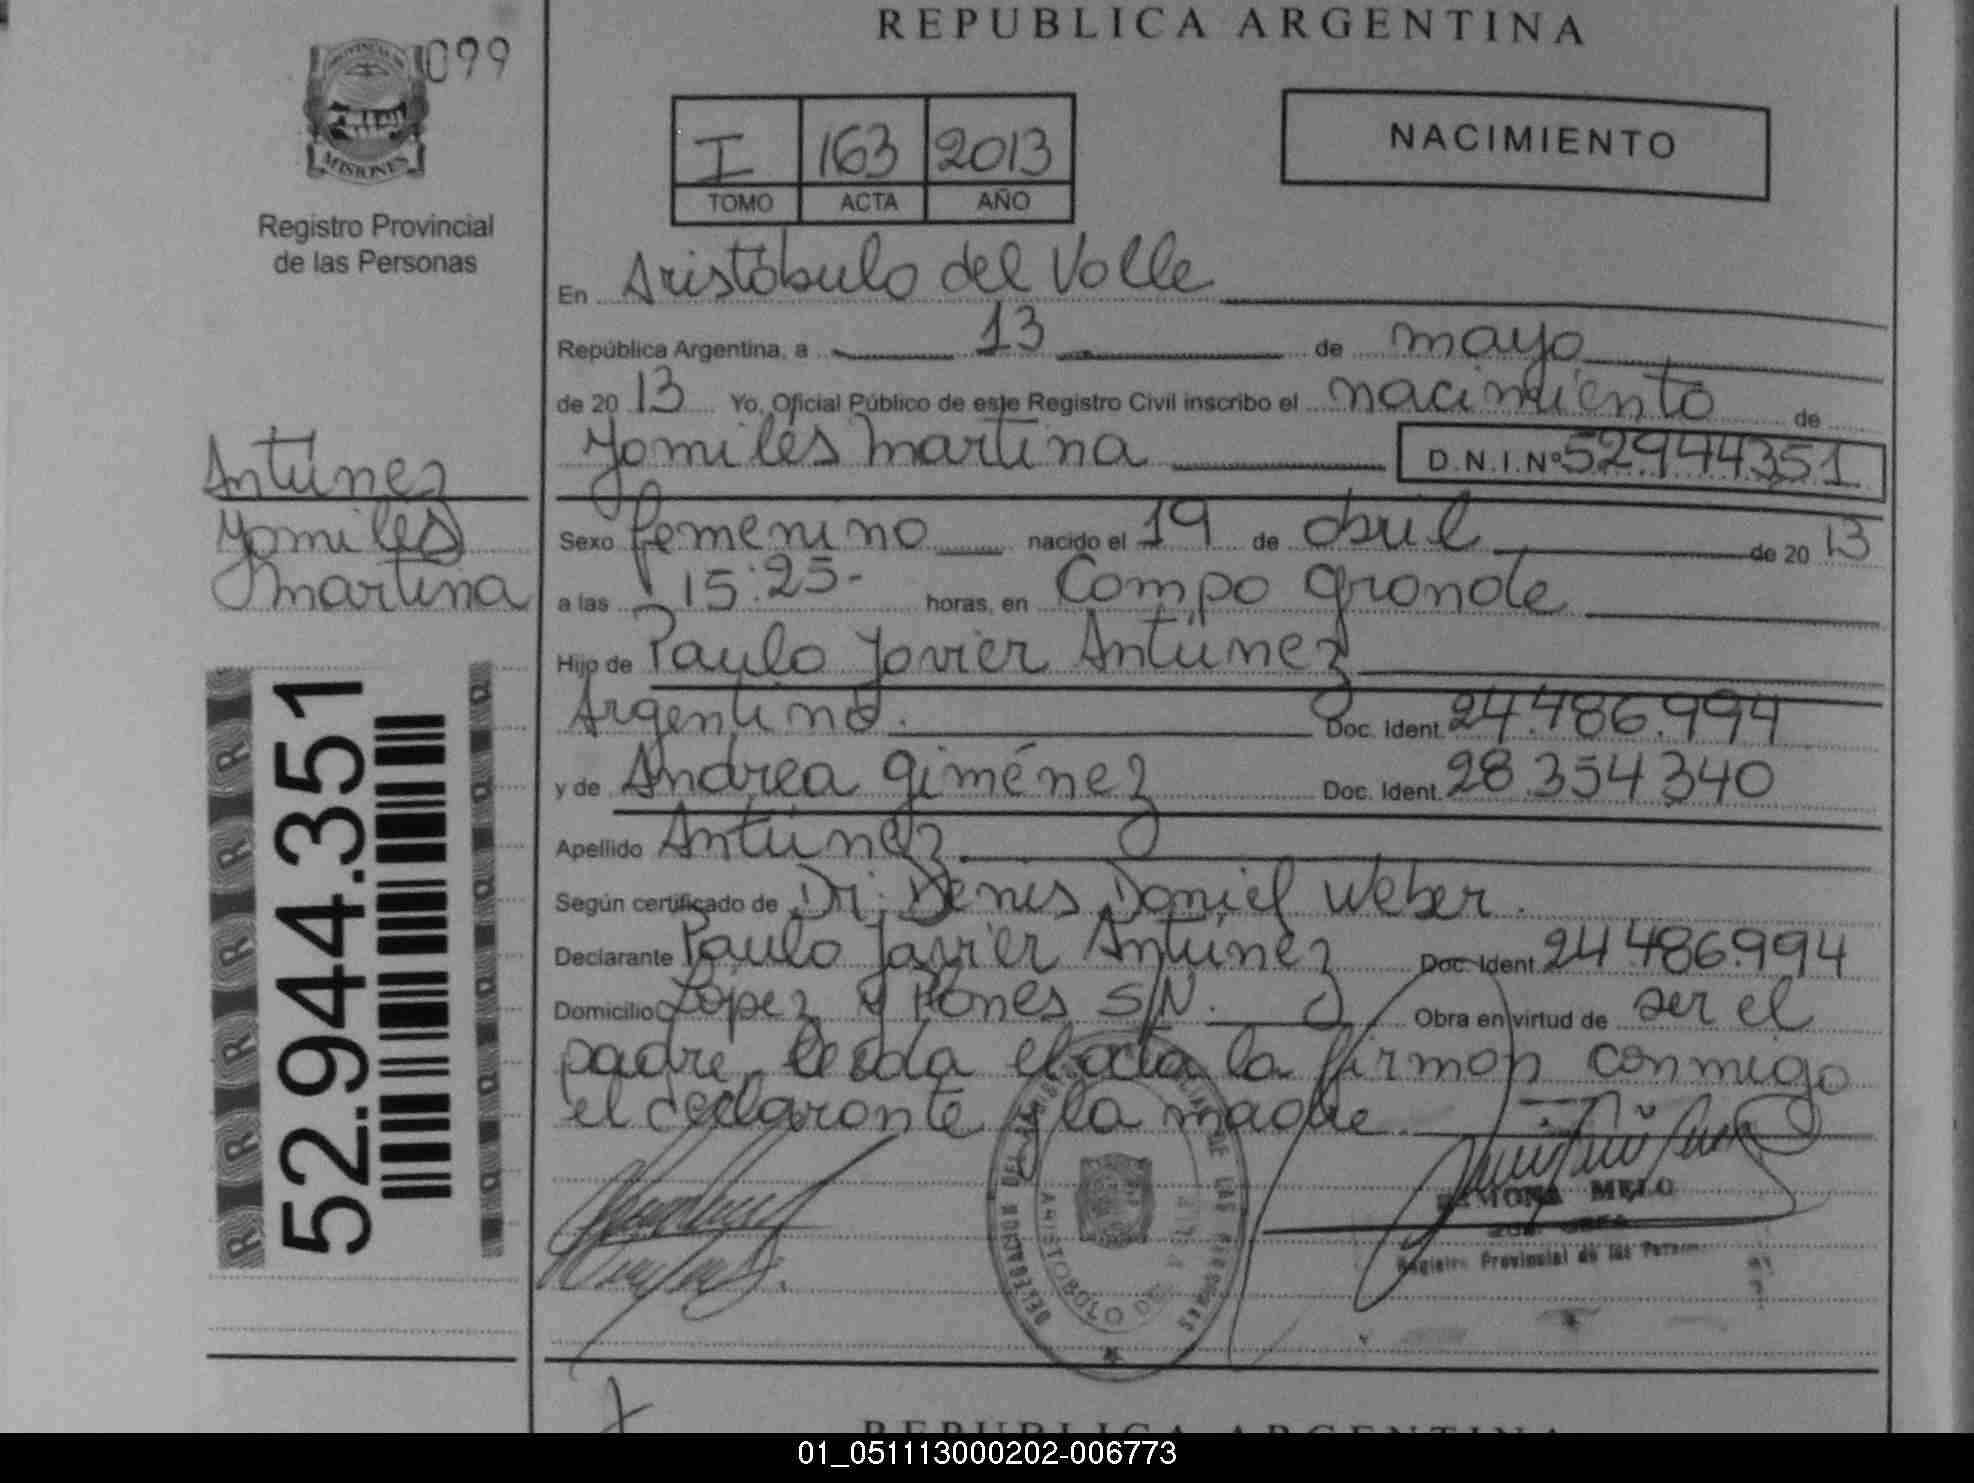 REPUBLICA ARGENTINA
099
PROVINCIA DE
MISIONES
Registro Provincial
de las Personas
I 163 2013
TOMO ACTA AÑO
NACIMIENTO
En Aristóbulo del Valle
República Argentina, a 13 de mayo
de 20 13 Yo, Oficial Público de este Registro Civil inscribo el nacimiento de
Yamilés Martina D.N.I.Nº 52944351
Antúnez
Yamilés
Martina
Sexo femenino nacido el 19 de abril de 20 13
a las 15:25- horas, en Campo Grande
Hijo de Paulo Javier Antúnez
Argentino. Doc. Ident. 24.486.994
y de Andrea Giménez Doc. Ident. 28.354340
Apellido Antúnez
Según certificado de Dr. Denis Daniel Weber.
Declarante Paulo Javier Antúnez Doc. Ident. 24486994
Domicilio López y Planes S/N. Obra en virtud de ser el
padre. Leída el acta la firman conmigo
el declarante y la madre
52.944.351
RAMONA MELO
Registro Provincial de las Person
ARISTOBULO DEL VALLE
REPUBLICA ARGENTINA
01_051113000202-006773